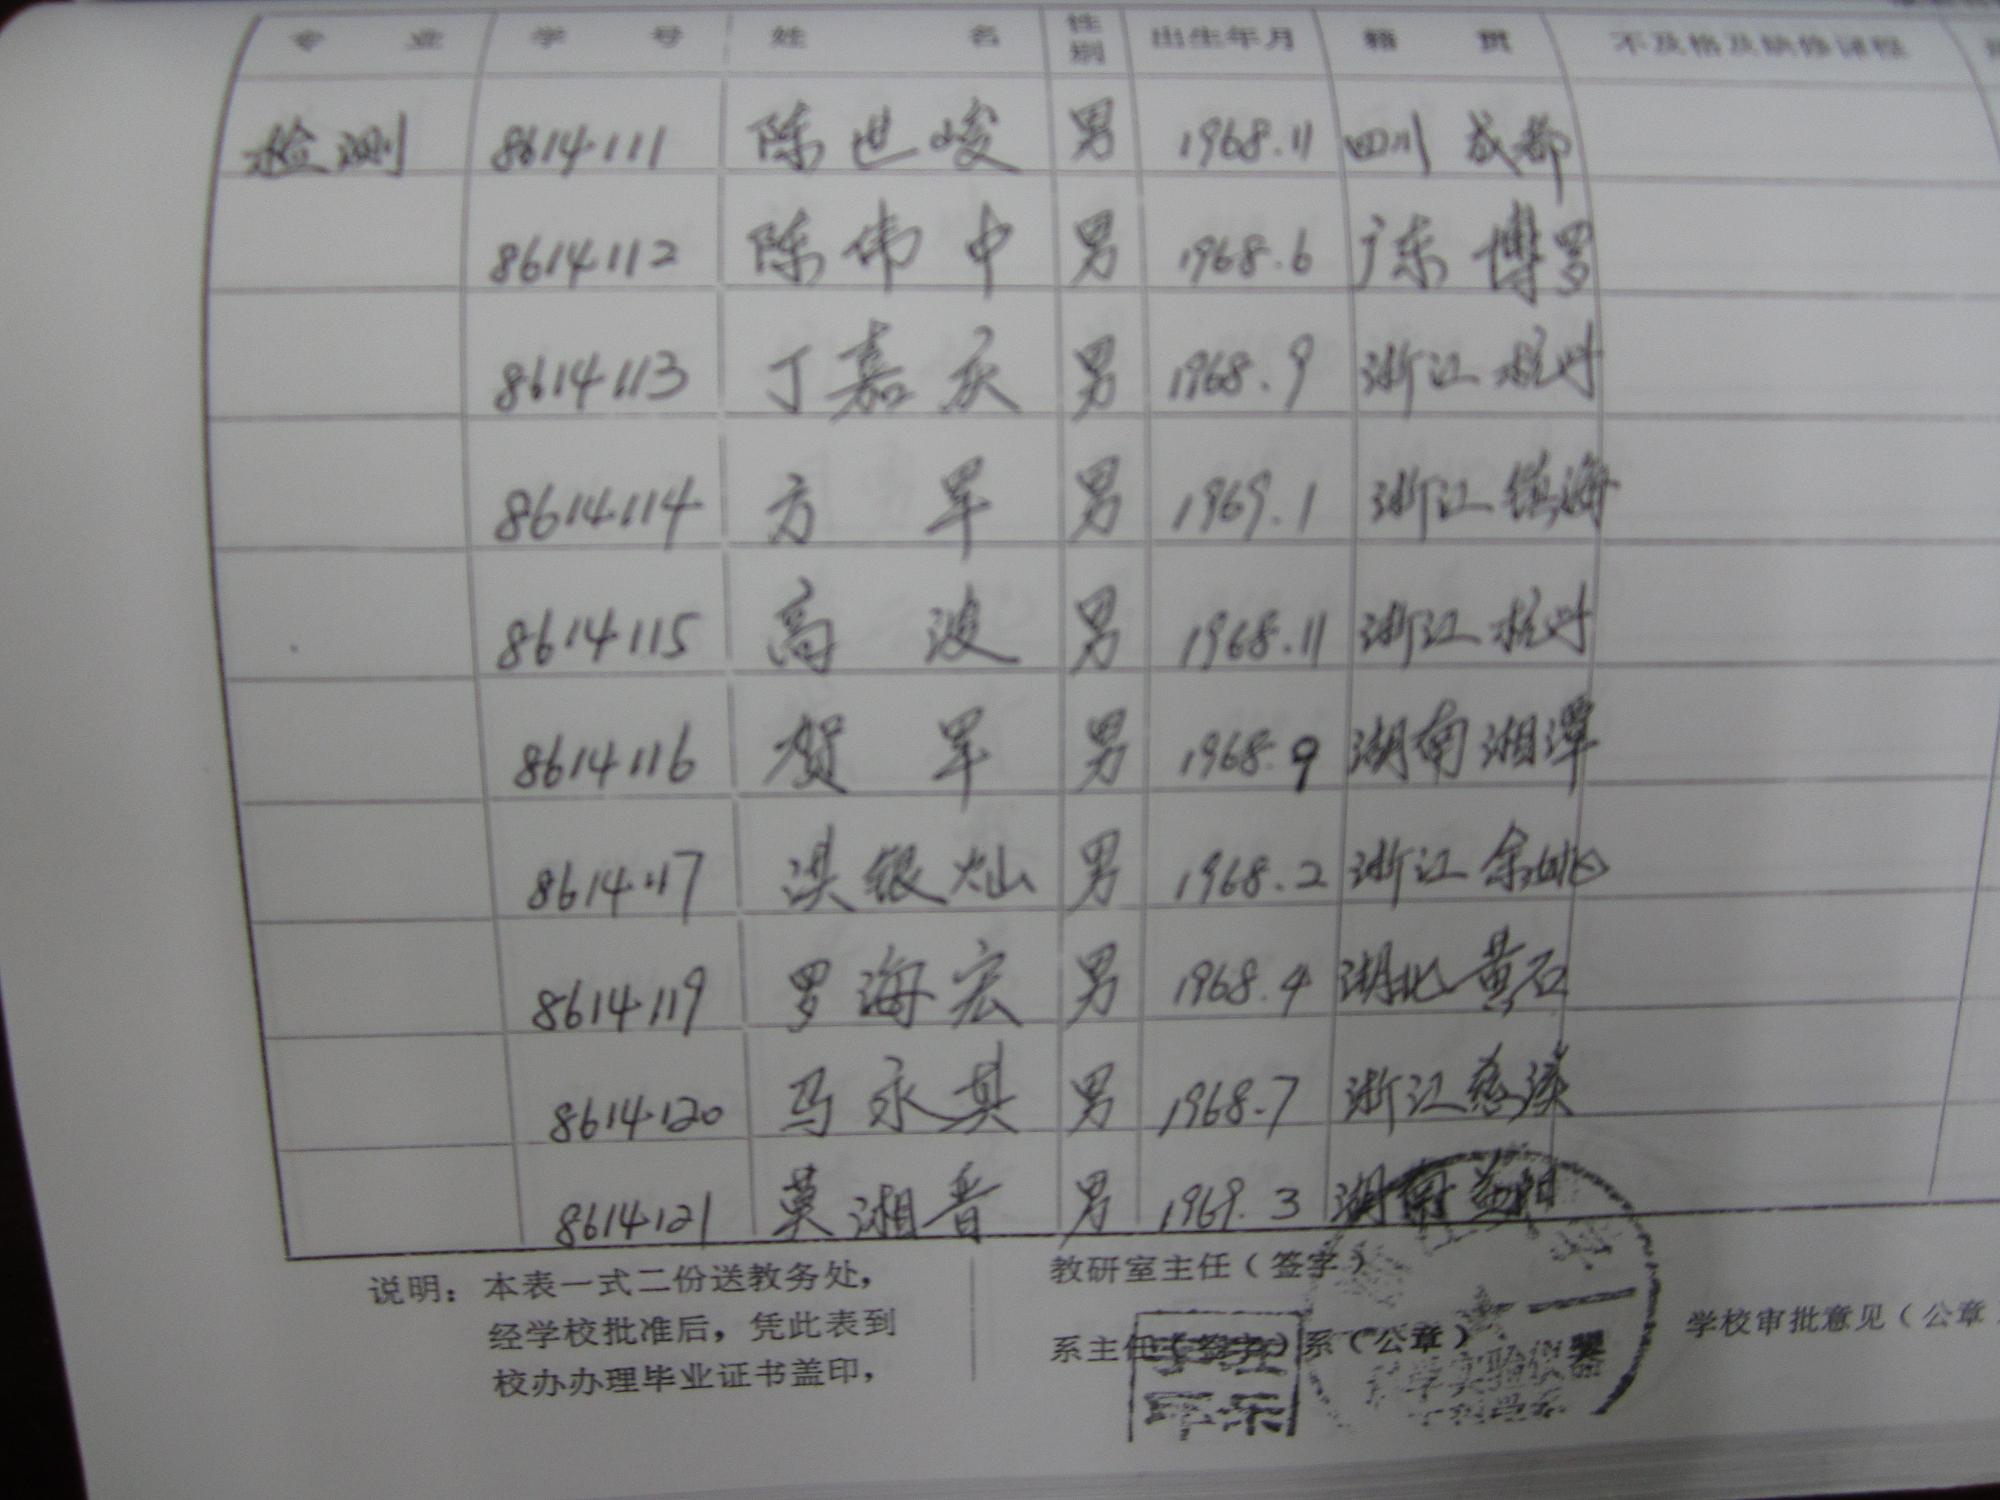 专 业 学 号 姓 名 性别 出生年月 籍 贯 不及格及缺修课程
检测 8614111 陈世峻 男 1968.11 四川 成都
8614112 陈伟中 男 1968.6 广东 博罗
8614113 丁嘉庆 男 1968.9 浙江 杭州
8614114 方军 男 1969.1 浙江 镇海
8614115 高波 男 1968.11 浙江 杭州
8614116 贺军 男 1968.9 湖南 湘潭
8614117 洪银灿 男 1968.2 浙江 余姚
8614119 罗海宏 男 1968.4 湖北 黄石
8614120 马永其 男 1968.7 浙江 慈溪
8614121 莫湘晋 男 1969.3 湖南 益阳
说明：本表一式二份送教务处，
经学校批准后，凭此表到
校办办理毕业证书盖印，
教研室主任（签字）
系主任（签字）系（公章）
学校审批意见（公章